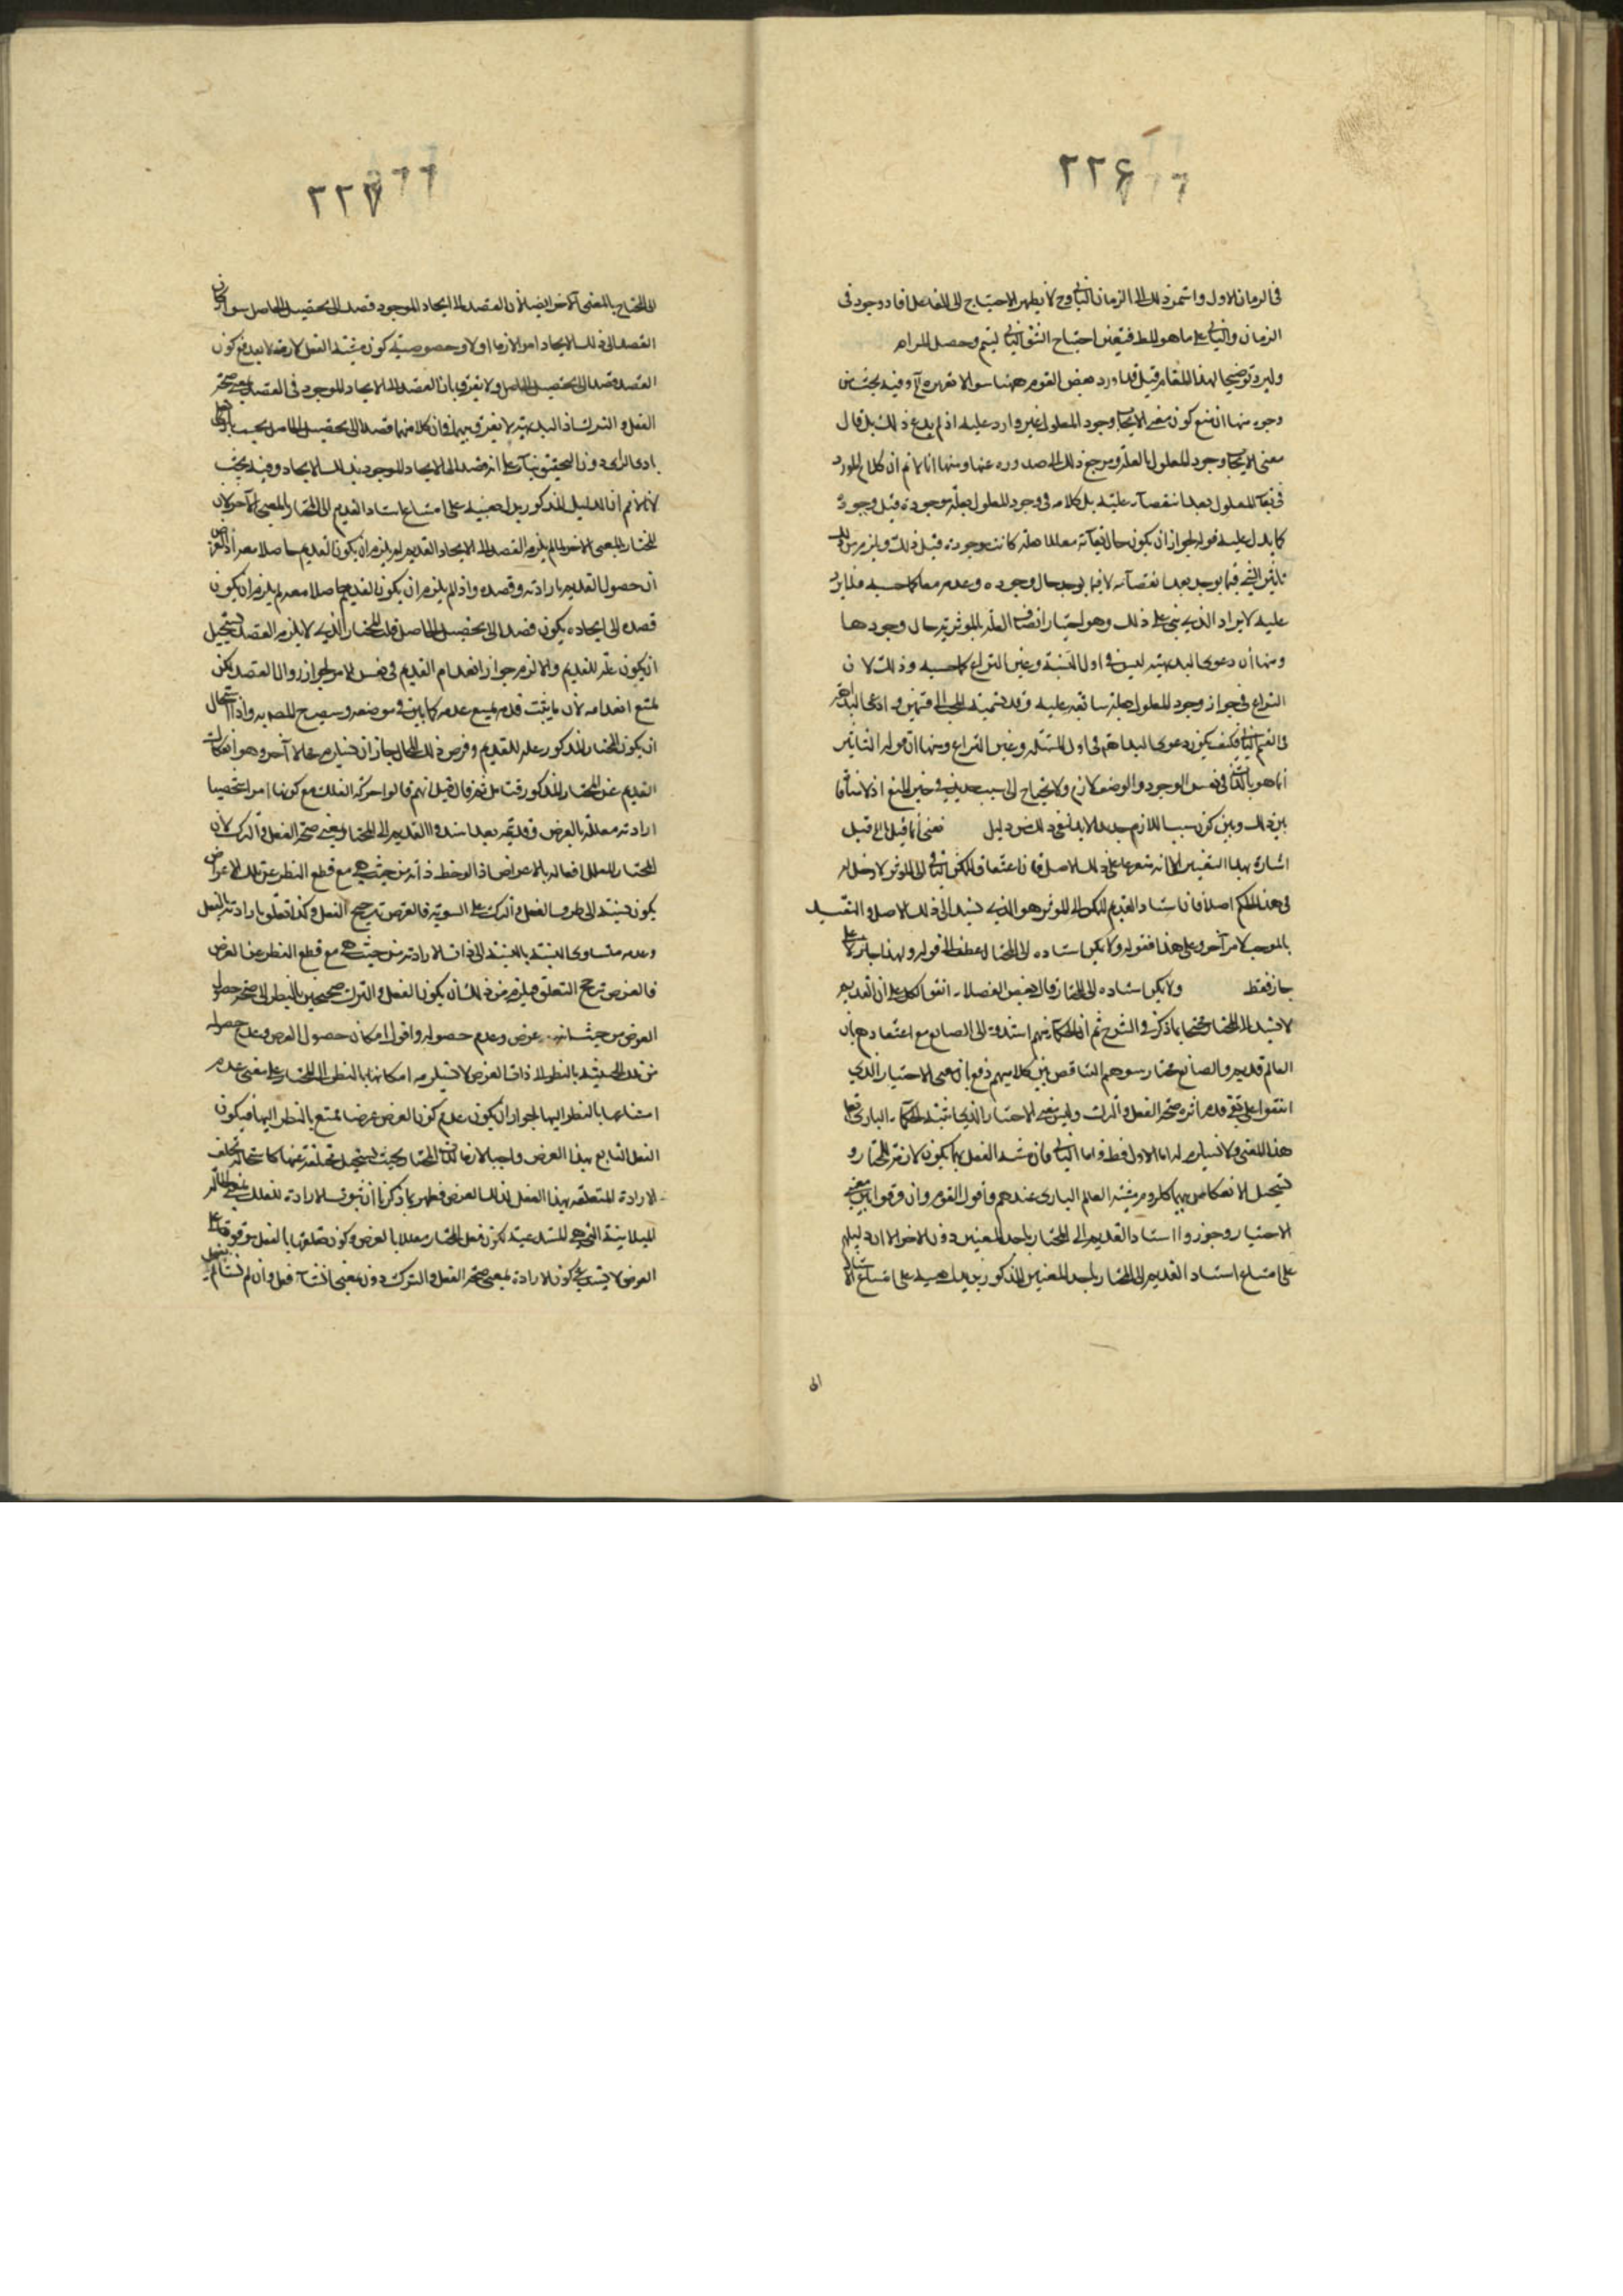 ٢٢۶
في الزمان الاول واستمر ذلك الى الزمان الثاني وح لا يظهر الاحتياج الى الفاعل فاد وجود في
الزمان والثاني على ما هو المط فيتعين احتياج الشق الثاني ليتم وحصل المرام
وليرد توضيحا لهذا المقام قيل قد اورد بعض القوم ههنا سوالا تقريره آه وفيه بحث من
وجوه منها ان منع كون معنى الايجاد وجود المعلول غير وارد عليه اذ لم يدع ذلك بل قال
معنى الايجاد وجود المعلول بالعلة ومرجع ذلك الى صدوره عنها ومنها انا لا نم ان كلام المورد
في بقاء المعلول بعد انقضاء علته بل كلامه في وجود المعلول بعلة موجودة قبل وجوده
كما يدل عليه قوله لجواز ان يكون حال بقائه معللا بعلة كانت موجودة قبل ذلك ويلزم من ذلك
تاثير الشيء فيما يوجد بعد انقضائه لا فيما يوجد حال وجوده وعدمه معا كما حسبه فلا يرد
عليه الايراد الذي بنى على ذلك وهو اختيار اتصاف العلة بالموثرية حال وجودها
ومنها أن دعوى البديهية ليس في اول النسبة وعين النزاع كما حسبه وذلك لان
النزاع في جواز وجود المعلول بعلة سابقة عليه وقد قسمه المجيب الى قسمين وادعى البداهة
في القسم الثاني فكيف يكون دعوى البداهة في اول المسئلة وعين النزاع ومنها ان قوله التاثير
انما هو باللذات في نفس الوجود والوصف لازم ولا يحتاج الى سبب جديد في حيز المنع اذ لا منافاة
بين ذلك وبين كون سبب اللازم جديدا لابد لنفي ذلك من دليل فمعنى ما قيل الى قيل
اشارة بهذا التفسير الى انه متفرع على ذلك الاصل فان اعتقاد الممكن الباقي الى الموثر لا دخل له
في هذا الحكم اصلا فان اسناد القديم الممكن الى الموثر هو الذي يستند الى ذلك الاصل والتقييد
بالموجب لامر آخر وعلى هذا فقوله ولا يمكن اسناده الى المختار عطف على قوله ولهذا جاز لا على
جاز فقط ولا يمكن اسناده الى المختار قال بعض الفضلاء اتفق الكل على ان القديم
لا يستند الى المختار محتجا بما ذكر في الشرح ثم ان الحكماء مع انهم اسندوه الى الصانع مع اعتقادهم بان
العالم قديم والصانع مختار رسوهم التناقض بين كلاميهم دفع بان معنى الاختيار الذي
اتفقوا على نفي قدم اثره صحة الفعل والترك وليس معنى الاختيار الذي اثبته الحكماء للباري تعالى
هذا المعنى ولا مستلزم له اما الاول فظ واما الثاني فان مشية الفعل بما يكون لازمة للمختار و
يستحيل الانفكاك بينهما كلزوم مشية العالم الباري عندهم واقول القوم وان فرقوا بين معنيي
الاختيار وجوزوا استناد القديم الى المختار باحد المعنيين دون الاخر الا ان دليلهم
على امتناع استناد القديم الى المختار باحد المعنيين المذكورين يدل بعينه على امتناع استناده
الى
٢٢٧
الى المختار بالمعنى الآخر ايضا لان القصد الى ايجاد الموجود قصد الى تحصيل الحاصل سواء كان
القصد الى ذلك الايجاد امرا لازما اولا وخصوصية كون مشية الفعل لازمة لا يدفع كون
القصد قصدا الى تحصيل الحاصل ولا يفرق بان القصد الى الايجاد الموجود في القصد بمعنى صحة
الفعل والترك اذ البديهة لا تفرق بينهما فان كلا منهما قصد الى تحصيل الحاصل بحسب
بادى الراى دون التحقيق بناء على انه قصد الى الايجاد الموجود بذلك الايجاد وفيه بحث
لانا لا نم ان الدليل المذكور يدل بعينه على امتناع استناد القديم الى المختار بالمعنى الآخر لان
المختار بالمعنى الاخر لما لم يلزم القصد الى الايجاد القديم لم يلزم ان يكون القديم حاصلا معه
ان حصول القديم بارادته وقصده واذا لم يلزم ان يكون القديم حاصلا معه لم يلزم ان يكون
قصده الى ايجاده يكون قصدا الى تحصيل الحاصل قلت المختار الذي لا يلزم القصد يستحيل
ان يكون علة للقديم والا لزم جواز انعدام القديم في نفس الامر لجواز زوال القصد لكن
يمتنع انعدامه لان ما يثبت قدمه يمتنع عدمه كما بين في موضعه وسيصرح المصـ به واذا استحال
ان يكون المختار المذكور علة للقديم وفرض ذلك المحال جاز ان يستلزم محالا آخر وهو انفكاك
القديم عن المختار المذكور فتامل ثم قال قيل انهم قالوا حركة الفلك مع كونها امرا شخصيا
ارادية معللة بالعرض وقديمة بعد استند القديم الى المختار بمعنى صحة الفعل والترك لان
المختار المعلل افعاله بالاغراض اذا لوحظ ذاته من حيث هي مع قطع النظر عن تلك الاغراض
يكون نسبته الى طرفي الفعل والترك على السوية فالغرض ترجح الفعل وكذا تعلق ارادته بالفعل
وعدمه متساوى النسبة بالنسبة الى ذات الارادة من حيث هي مع قطع النظر عن الغرض
فالغرض ترجح التعلق فيلزم من ذلك ان يكون الفعل والترك صحيحين بالنظر الى صحة حصول
الغرض من حيث انه غرض وعدم حصوله واقول امكان حصول الغرض وعدم حصوله
من تلك الحيثية بالنظر الى ذات الغرض لا يستلزم امكانها بالنظر الى المختار على معنى عدم
امتناعها بالنظر اليها لجواز ان يكون عدم كون الغرض غرضا يمتنع بالنظر اليها فيكون
الفعل التابع بهذا الغرض واجبا لازما لذات المختار بحيث يستحيل تخلفه عنها كاستحالة تخلف
الارادة المتعلقة بهذا الفعل لذلك الغرض فظهر بما ذكرنا ان ثبوت الارادة للفلك
للمباينة التي هي المستدعية لكون فعل المختار معللا بالغرض وكون تعلقها بالفعل موقوفا على
الغرض لا يستدعي كون الارادة بمعنى صحة الفعل والترك دون معنى ان شاء فعل وان لم يشاء لم يفعل